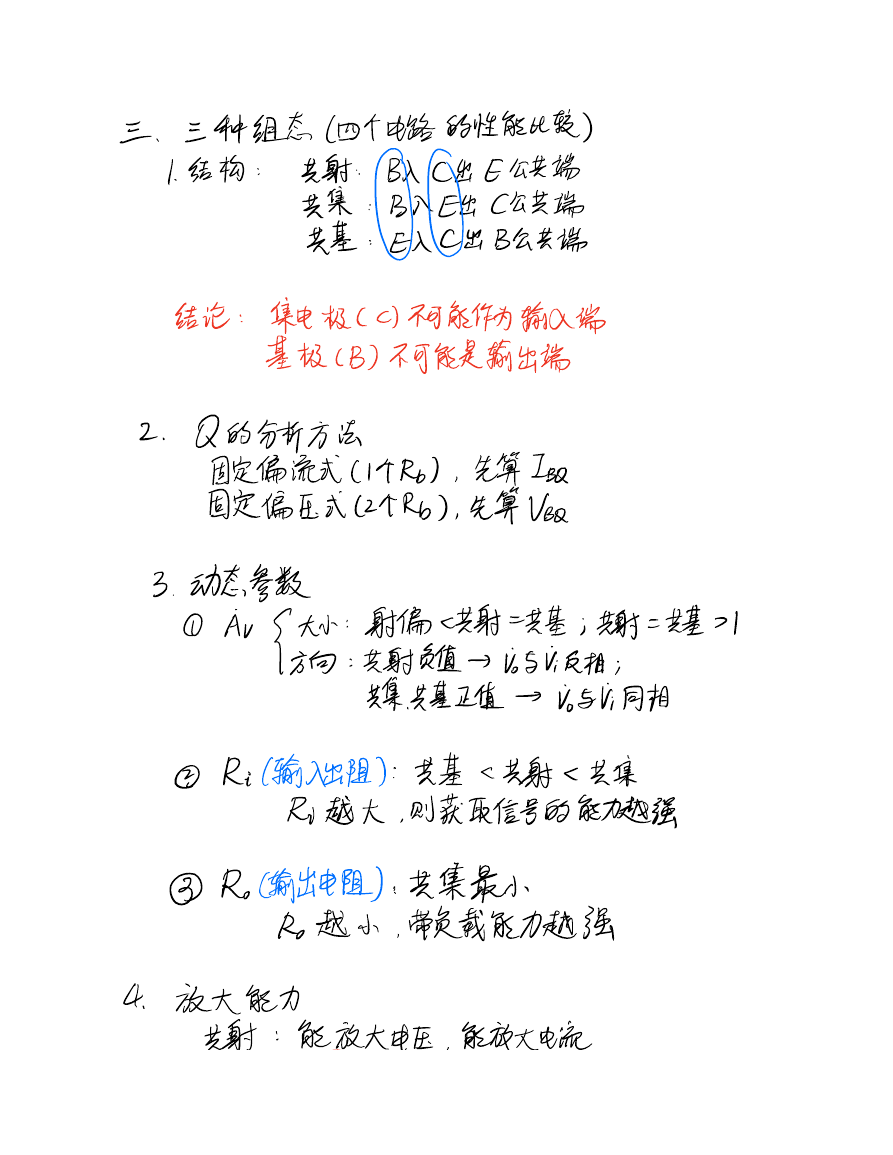 三、三种组态(四个电路的性能比较)
1.结构: 共射: B入 C出 E公共端
共集: B入 E出 C公共端
共基: E入 C出 B公共端
结论: 集电极(C)不可能作为输入端
基极(B)不可能是输出端
2. Q的分析方法
固定偏流式(1个Rb), 先算IBQ
固定偏压式(2个Rb), 先算VBQ
3. 动态参数
① Av { 大小: 射偏<共射=共基; 共射=共基>1
方向: 共射负值→V̇o与V̇i反相;
共集.共基正值→V̇o与V̇i同相
② Ri(输入出阻): 共基<共射<共集
Ri越大,则获取信号的能力越强
③ Ro(输出电阻): 共集最小
Ro越小,带负载能力越强
4. 放大能力
共射: 能放大电压,能放大电流